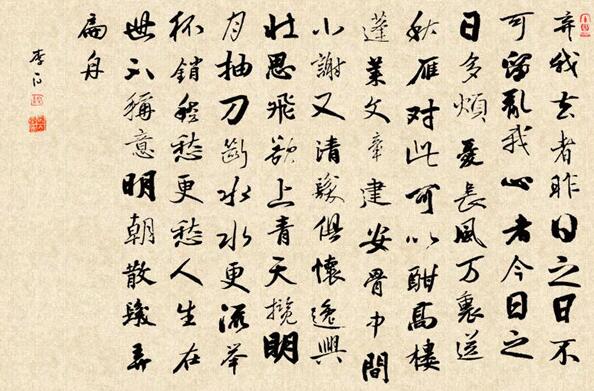 弃我去者昨日之日不
可留亂我心者今日之
日多煩憂長風万裏送
秋雁对此可以酣高樓
蓬莱文章建安骨中間
小謝又清發俱懷逸興
壮思飛欲上青天攬明
月抽刀斷水水更流举
杯銷愁愁更愁人生在
世不稱意明朝散發弄
扁舟
李白